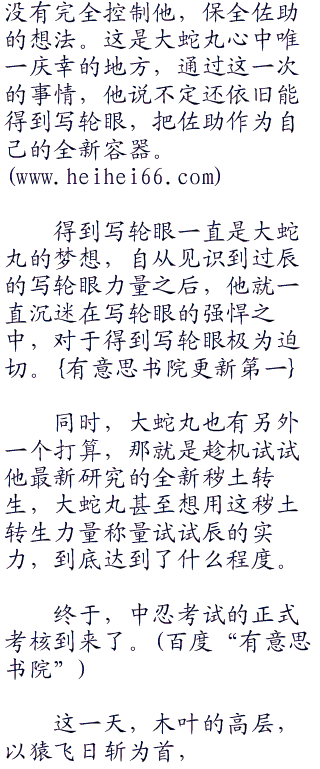 没有完全控制他，保全佐助
的想法。这是大蛇丸心中唯
一庆幸的地方，通过这一次
的事情，他说不定还依旧能
得到写轮眼，把佐助作为自
己的全新容器。
(www.heihei66.com)
得到写轮眼一直是大蛇
丸的梦想，自从见识到过辰
的写轮眼力量之后，他就一
直沉迷在写轮眼的强悍之
中，对于得到写轮眼极为迫
切。{有意思书院更新第一}
同时，大蛇丸也有另外
一个打算，那就是趁机试试
他最新研究的全新秽土转
生，大蛇丸甚至想用这秽土
转生力量称量试试辰的实
力，到底达到了什么程度。
终于，中忍考试的正式
考核到来了。(百度“有意思
书院”)
这一天，木叶的高层，
以猿飞日斩为首，